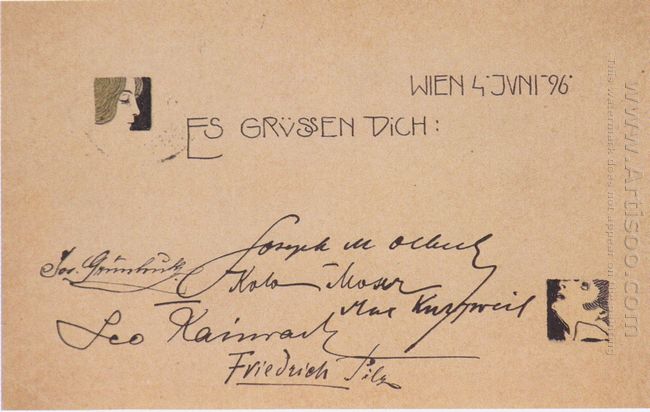 WIEN 4·JVNI·96·
ES GRÜSSEN DICH:
Joseph M Olbrich
Kolo Moser
Max Kurzweil
Leo Kainradl
Friedrich Pilz
www.Artisoo.com
This watermark does not appear on